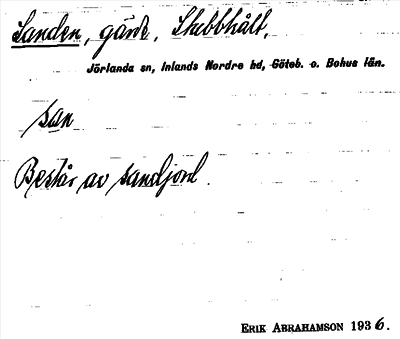 Sanden, gärde, Stubbhält,
Jörlanda sn, Inlands Nordre hd, Göteb. o. Bohus län.
san
Består av sandjord.
ERIK ABRAHAMSON 1936.